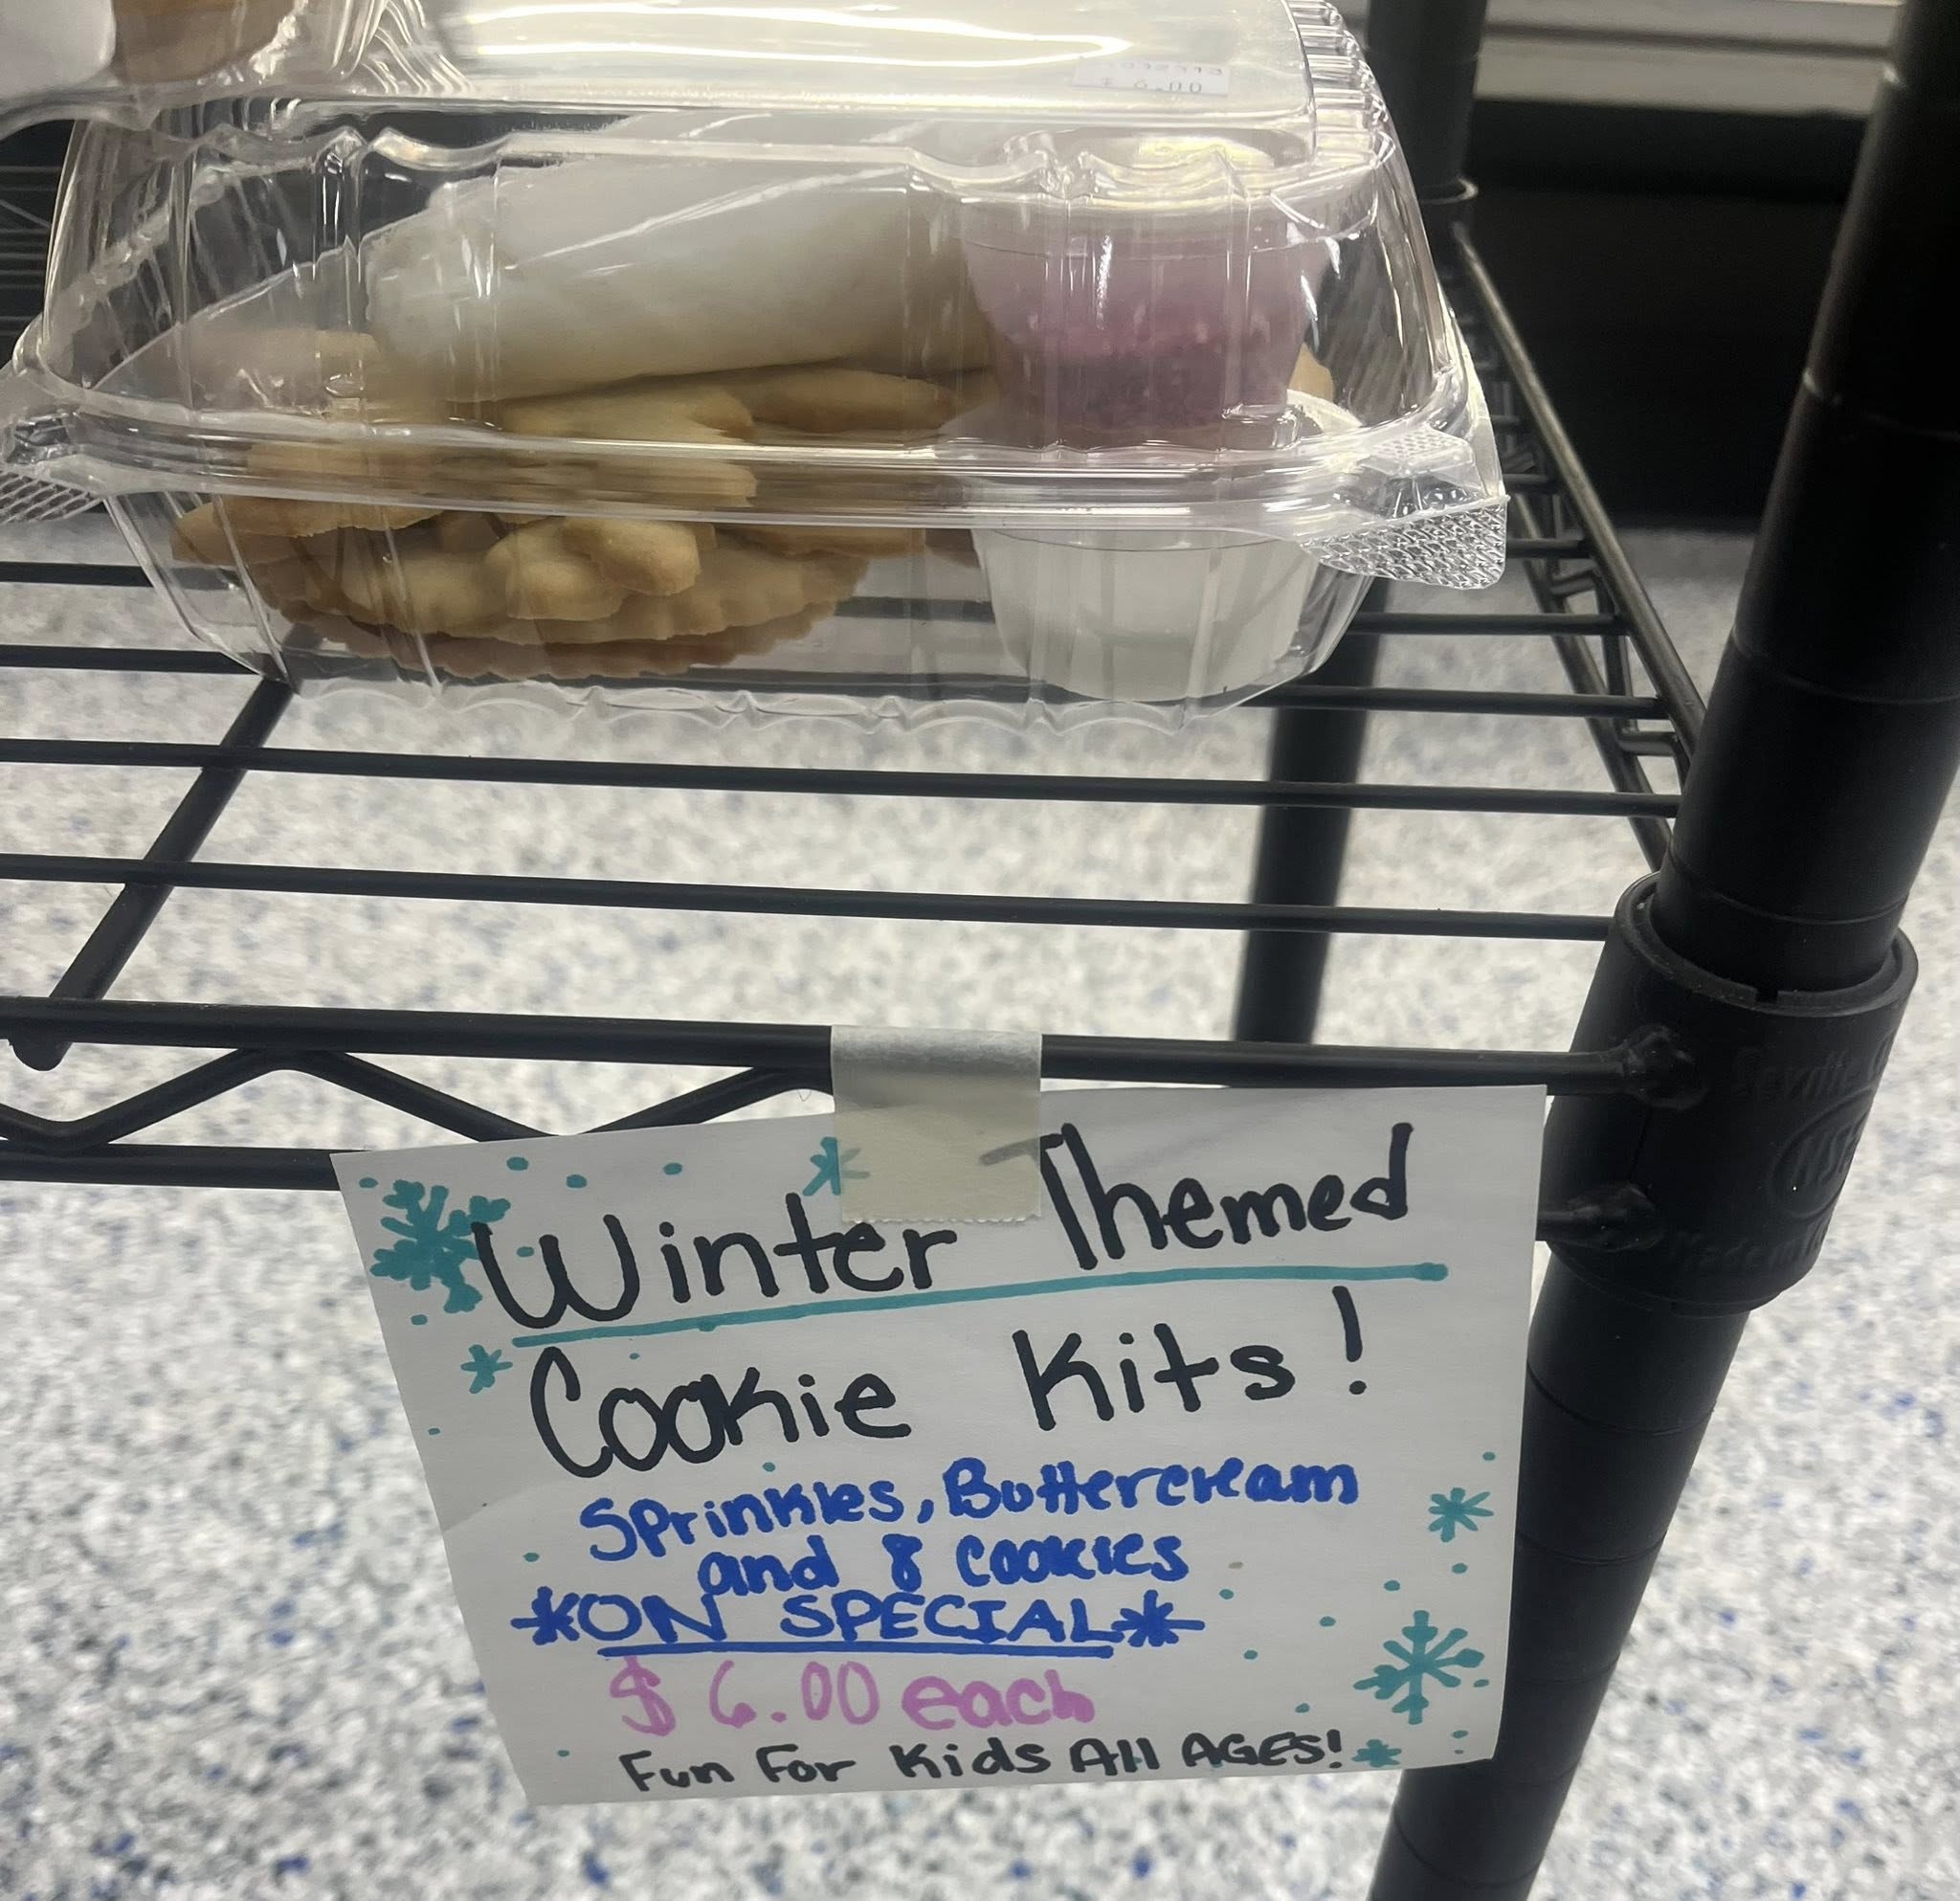 $ 6.00
Winter Themed
Cookie Kits!
Sprinkles, Buttercream
and 8 cookies
*ON SPECIAL*
$ 6.00 each
Fun For Kids All AGES!
NSF